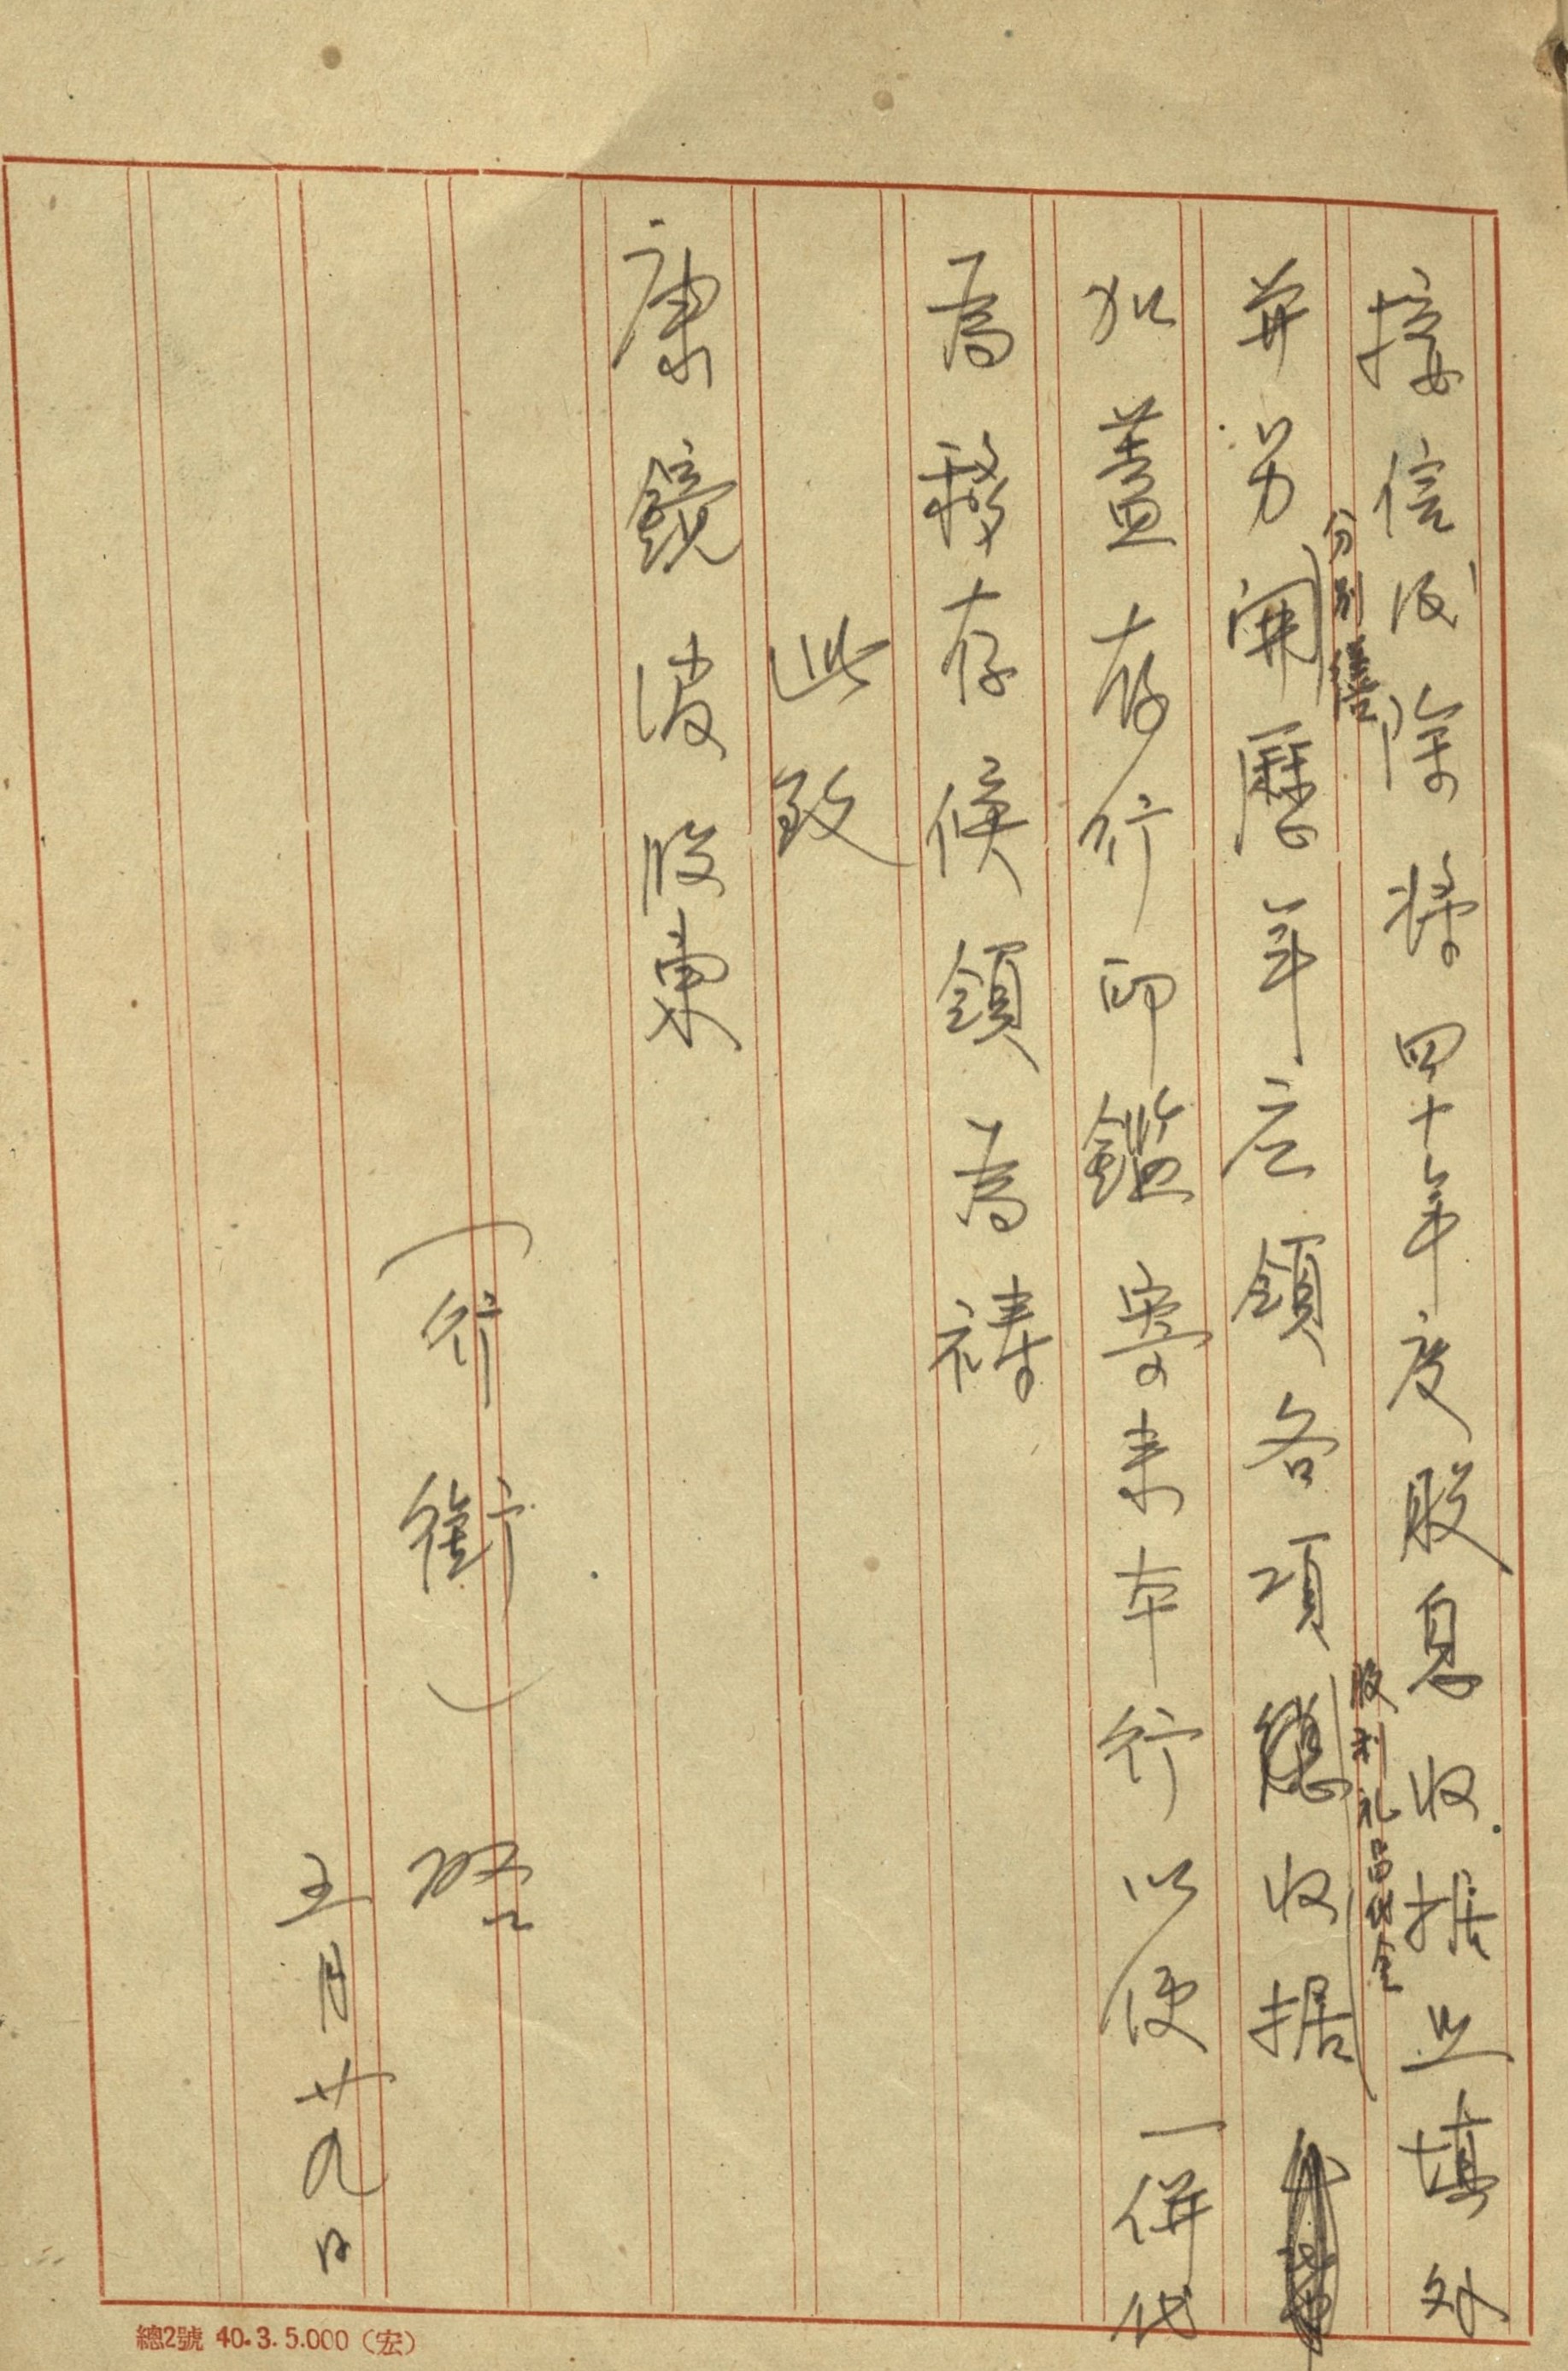 接信後除將四十年度股息收据照填外
並另開歷年应領各項總收据
分別繕
股利礼品代金
加蓋存行印鑑寄来本行以便一併代
為移存候領為禱
此致
康鏡波股東
（行銜）啓
五月廿九日
總2號 40.3.5.000（宏）